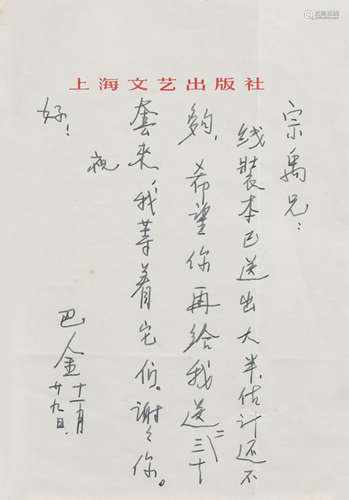 上海文艺出版社
宗禹兄：
线装本已送出大半，估计还不
夠，希望你再给我送二、三十
套来，我等着它们。谢谢你。
祝
好！
巴金
十一月
廿九日